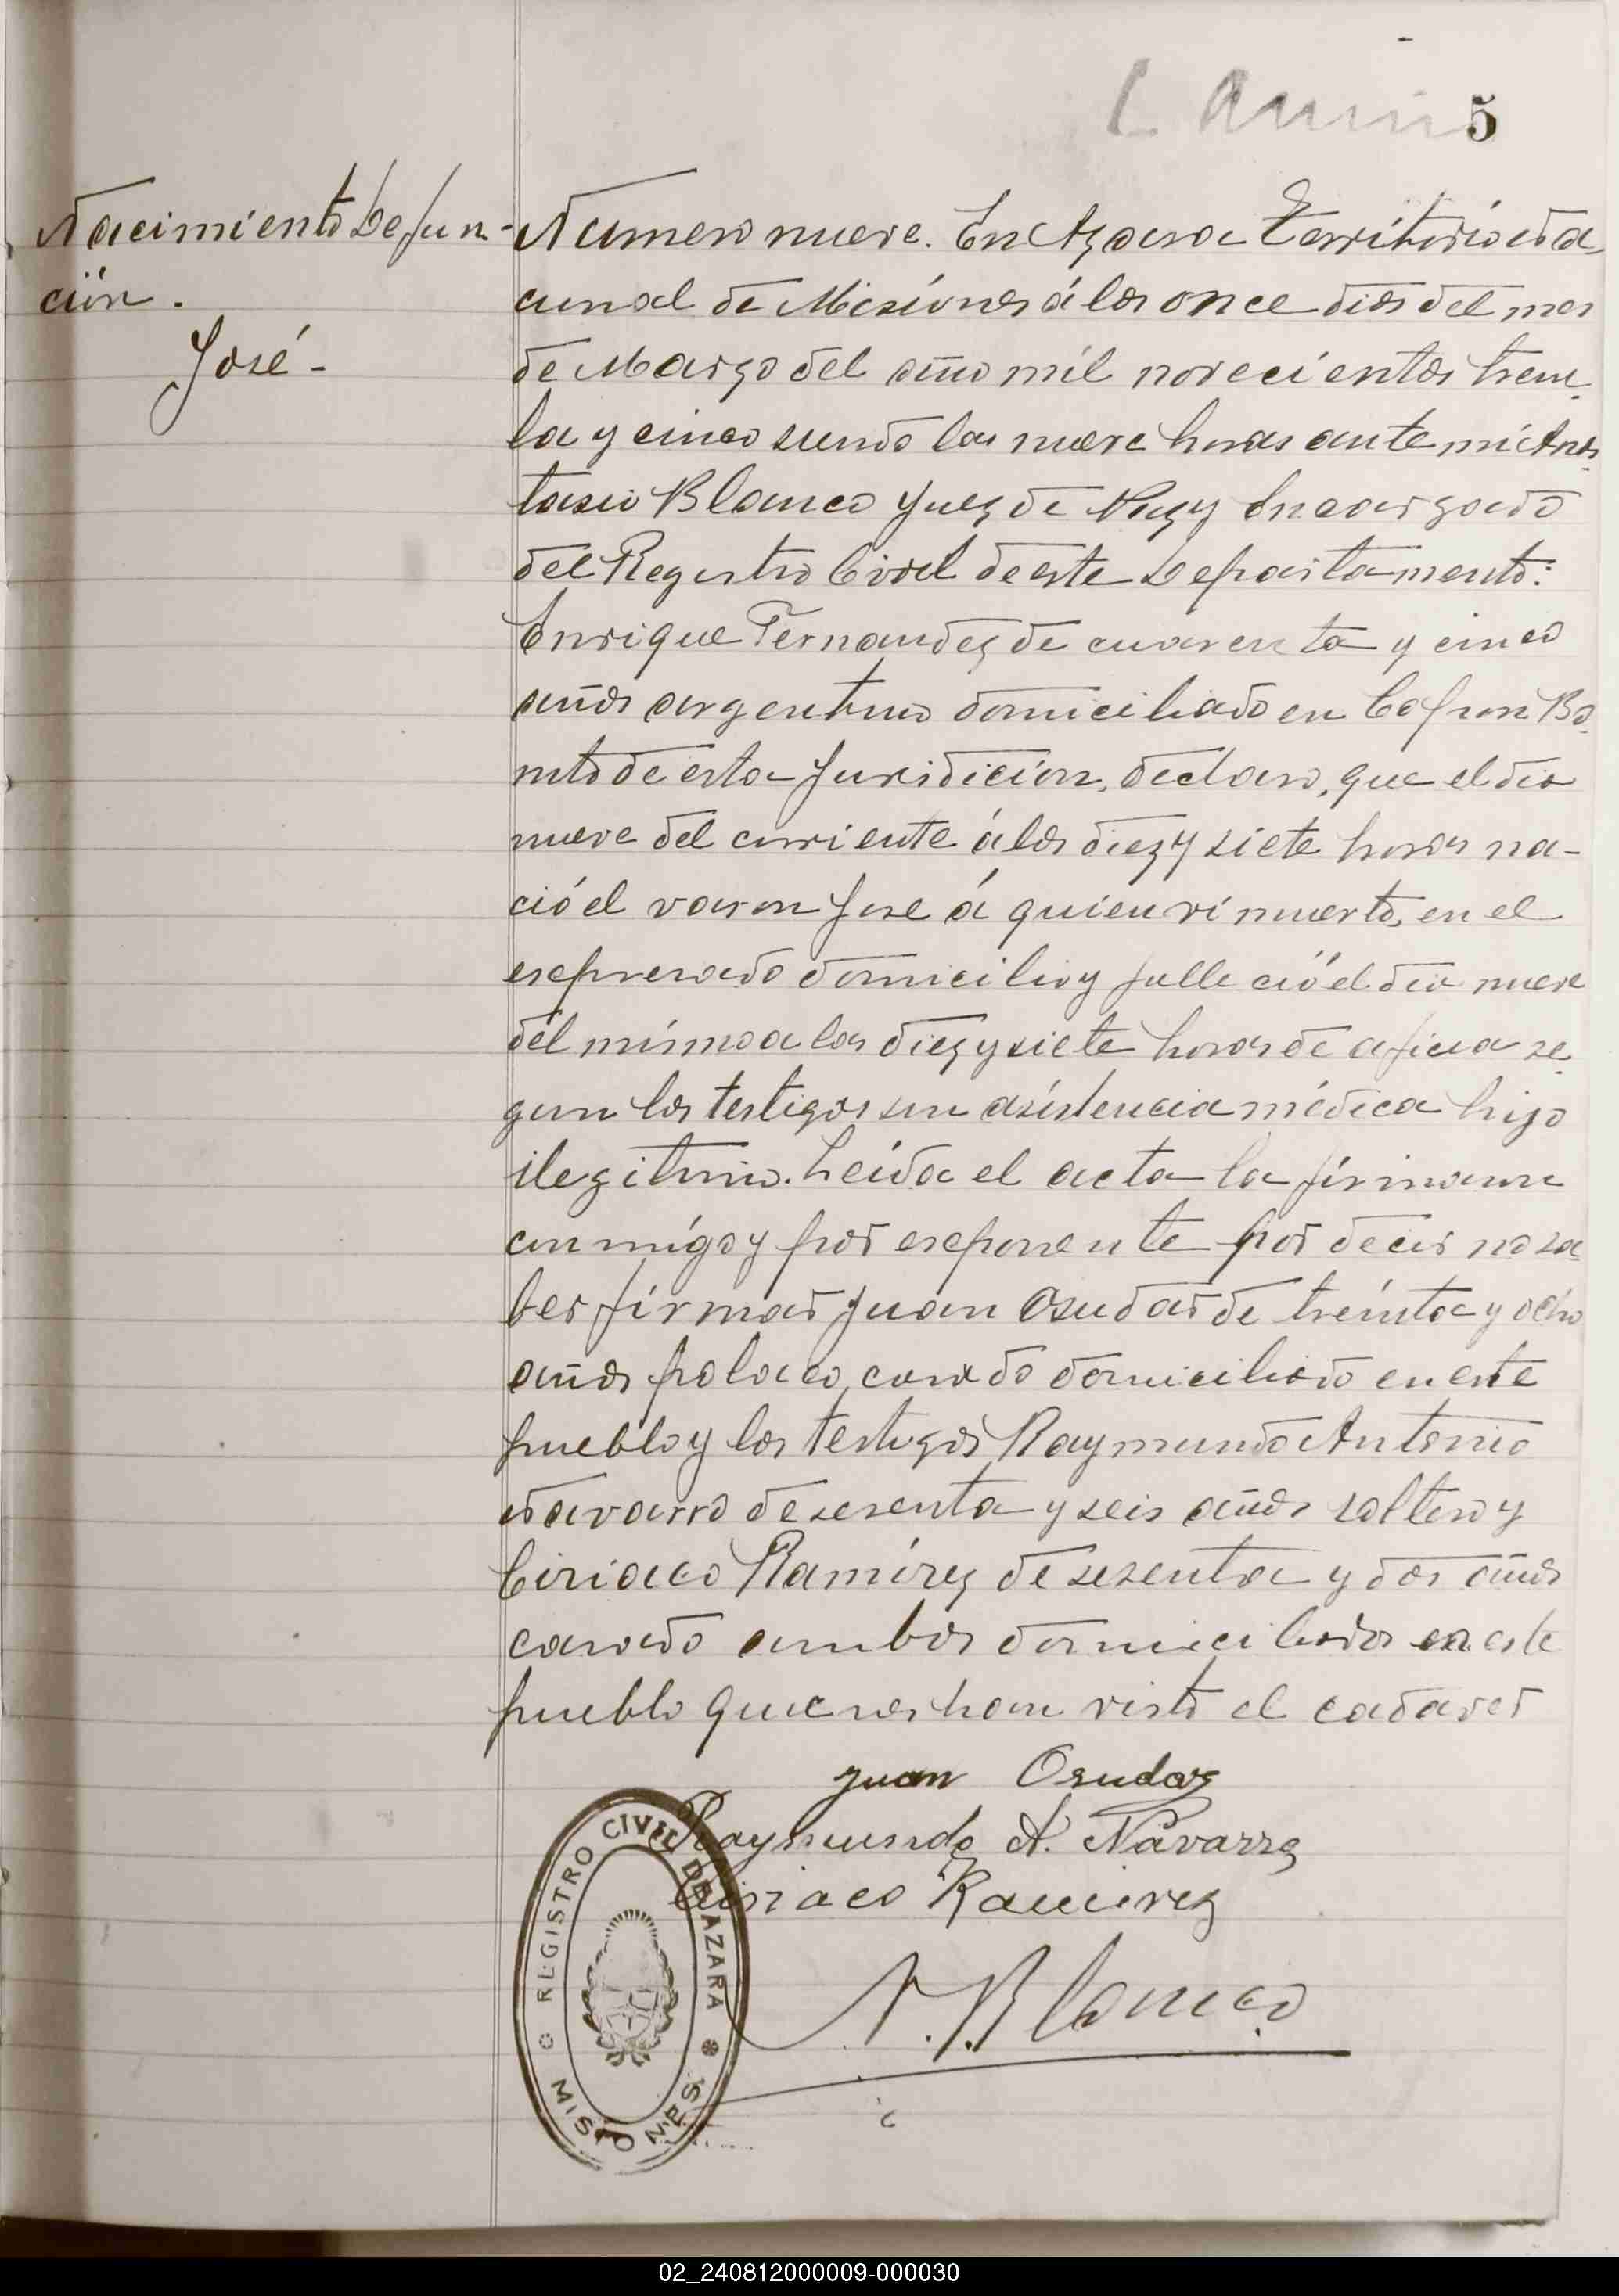 5
Nacimiento Defun-
ción.
José-
Numero nueve. En Azara Territorio Na
cional de Misiones á los once dias del mes
de Marzo del año mil novecientos trein
ta y cinco siendo las nueve horas ante mi Anas
tasio Blanco Juez de Paz y Encargado
del Registro Civil de este Departamento:
Enrique Fernandez de cuarenta y cinco
años argentino domiciliado en Bo
nito de esta Juridicion, declaro, que el dia
nueve del corriente á las diez y siete horas na-
ció el varon Jose á quien vi muerto, en el
expresado domicilio y falleció el dia nueve
del mismo a las diez y siete horas de asficia se
gun los testigos sin asistencia médica hijo
ilegitimo. Leida el acta la firman
conmigo y por exponente por decir no sa
ber firmar Juan Osudar de treinta y ocho
años polaco, casado domiciliado en este
pueblo y los testigos Raymundo Antonio
Navarro de sesenta y seis años soltero y
Ciriaco Ramírez de sesenta y dos años
casado ambos domiciliados en este
pueblo quienes han visto el cadaver
Juan Osudar
Raymundo A. Navarro
Ciriaco Ramirez
A. Blanco
REGISTRO CIVIL DE AZARA
MISIONES
02_240812000009-000030